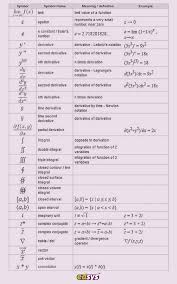 Symbol Symbol Name Meaning / definition Example
limit limit value of a function
ε epsilon represents a very small number, near zero ε → 0
e e constant / Euler's number e = 2.718281828... e = lim (1+1/x)^x , x→∞
y ' derivative derivative - Lagrange's notation (3x³)' = 9x²
y '' second derivative derivative of derivative (3x³)'' = 18x
nth derivative n times derivation (3x³)⁽³⁾ = 18
derivative derivative - Leibniz's notation d(3x³)/dx = 9x²
second derivative derivative of derivative d²(3x³)/dx² = 18x
nth derivative n times derivation
time derivative derivative by time - Newton notation
time second derivative derivative of derivative
partial derivative ∂(x²+y²)/∂x = 2x
∫ integral opposite to derivation
∬ double integral integration of function of 2 variables
∭ triple integral integration of function of 3 variables
∮ closed contour / line integral
∯ closed surface integral
∰ closed volume integral
[a,b] closed interval [a,b] = {x | a ≤ x ≤ b}
(a,b) open interval (a,b) = {x | a < x < b}
i imaginary unit i ≡ √-1 z = 3 + 2i
z* complex conjugate z = a+bi → z* = a-bi z* = 3 + 2i
z complex conjugate z = a+bi → z = a-bi z = 3 + 2i
∇ nabla / del gradient / divergence operator ∇f (x,y,z)
vector
x * y convolution y(t) = x(t) * h(t)